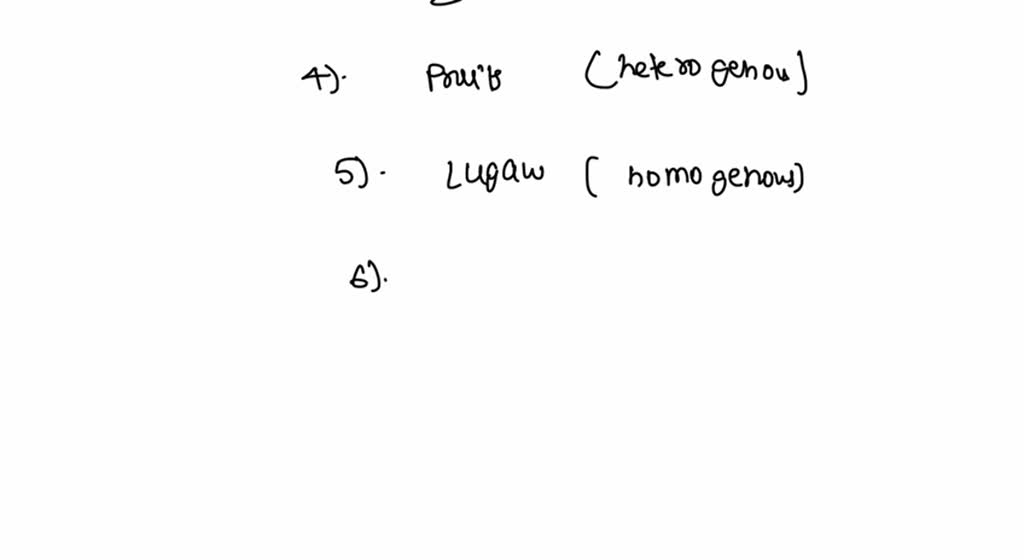 4). Fruits (heterogenou)
5). Lugaw ( homogenous)
6).